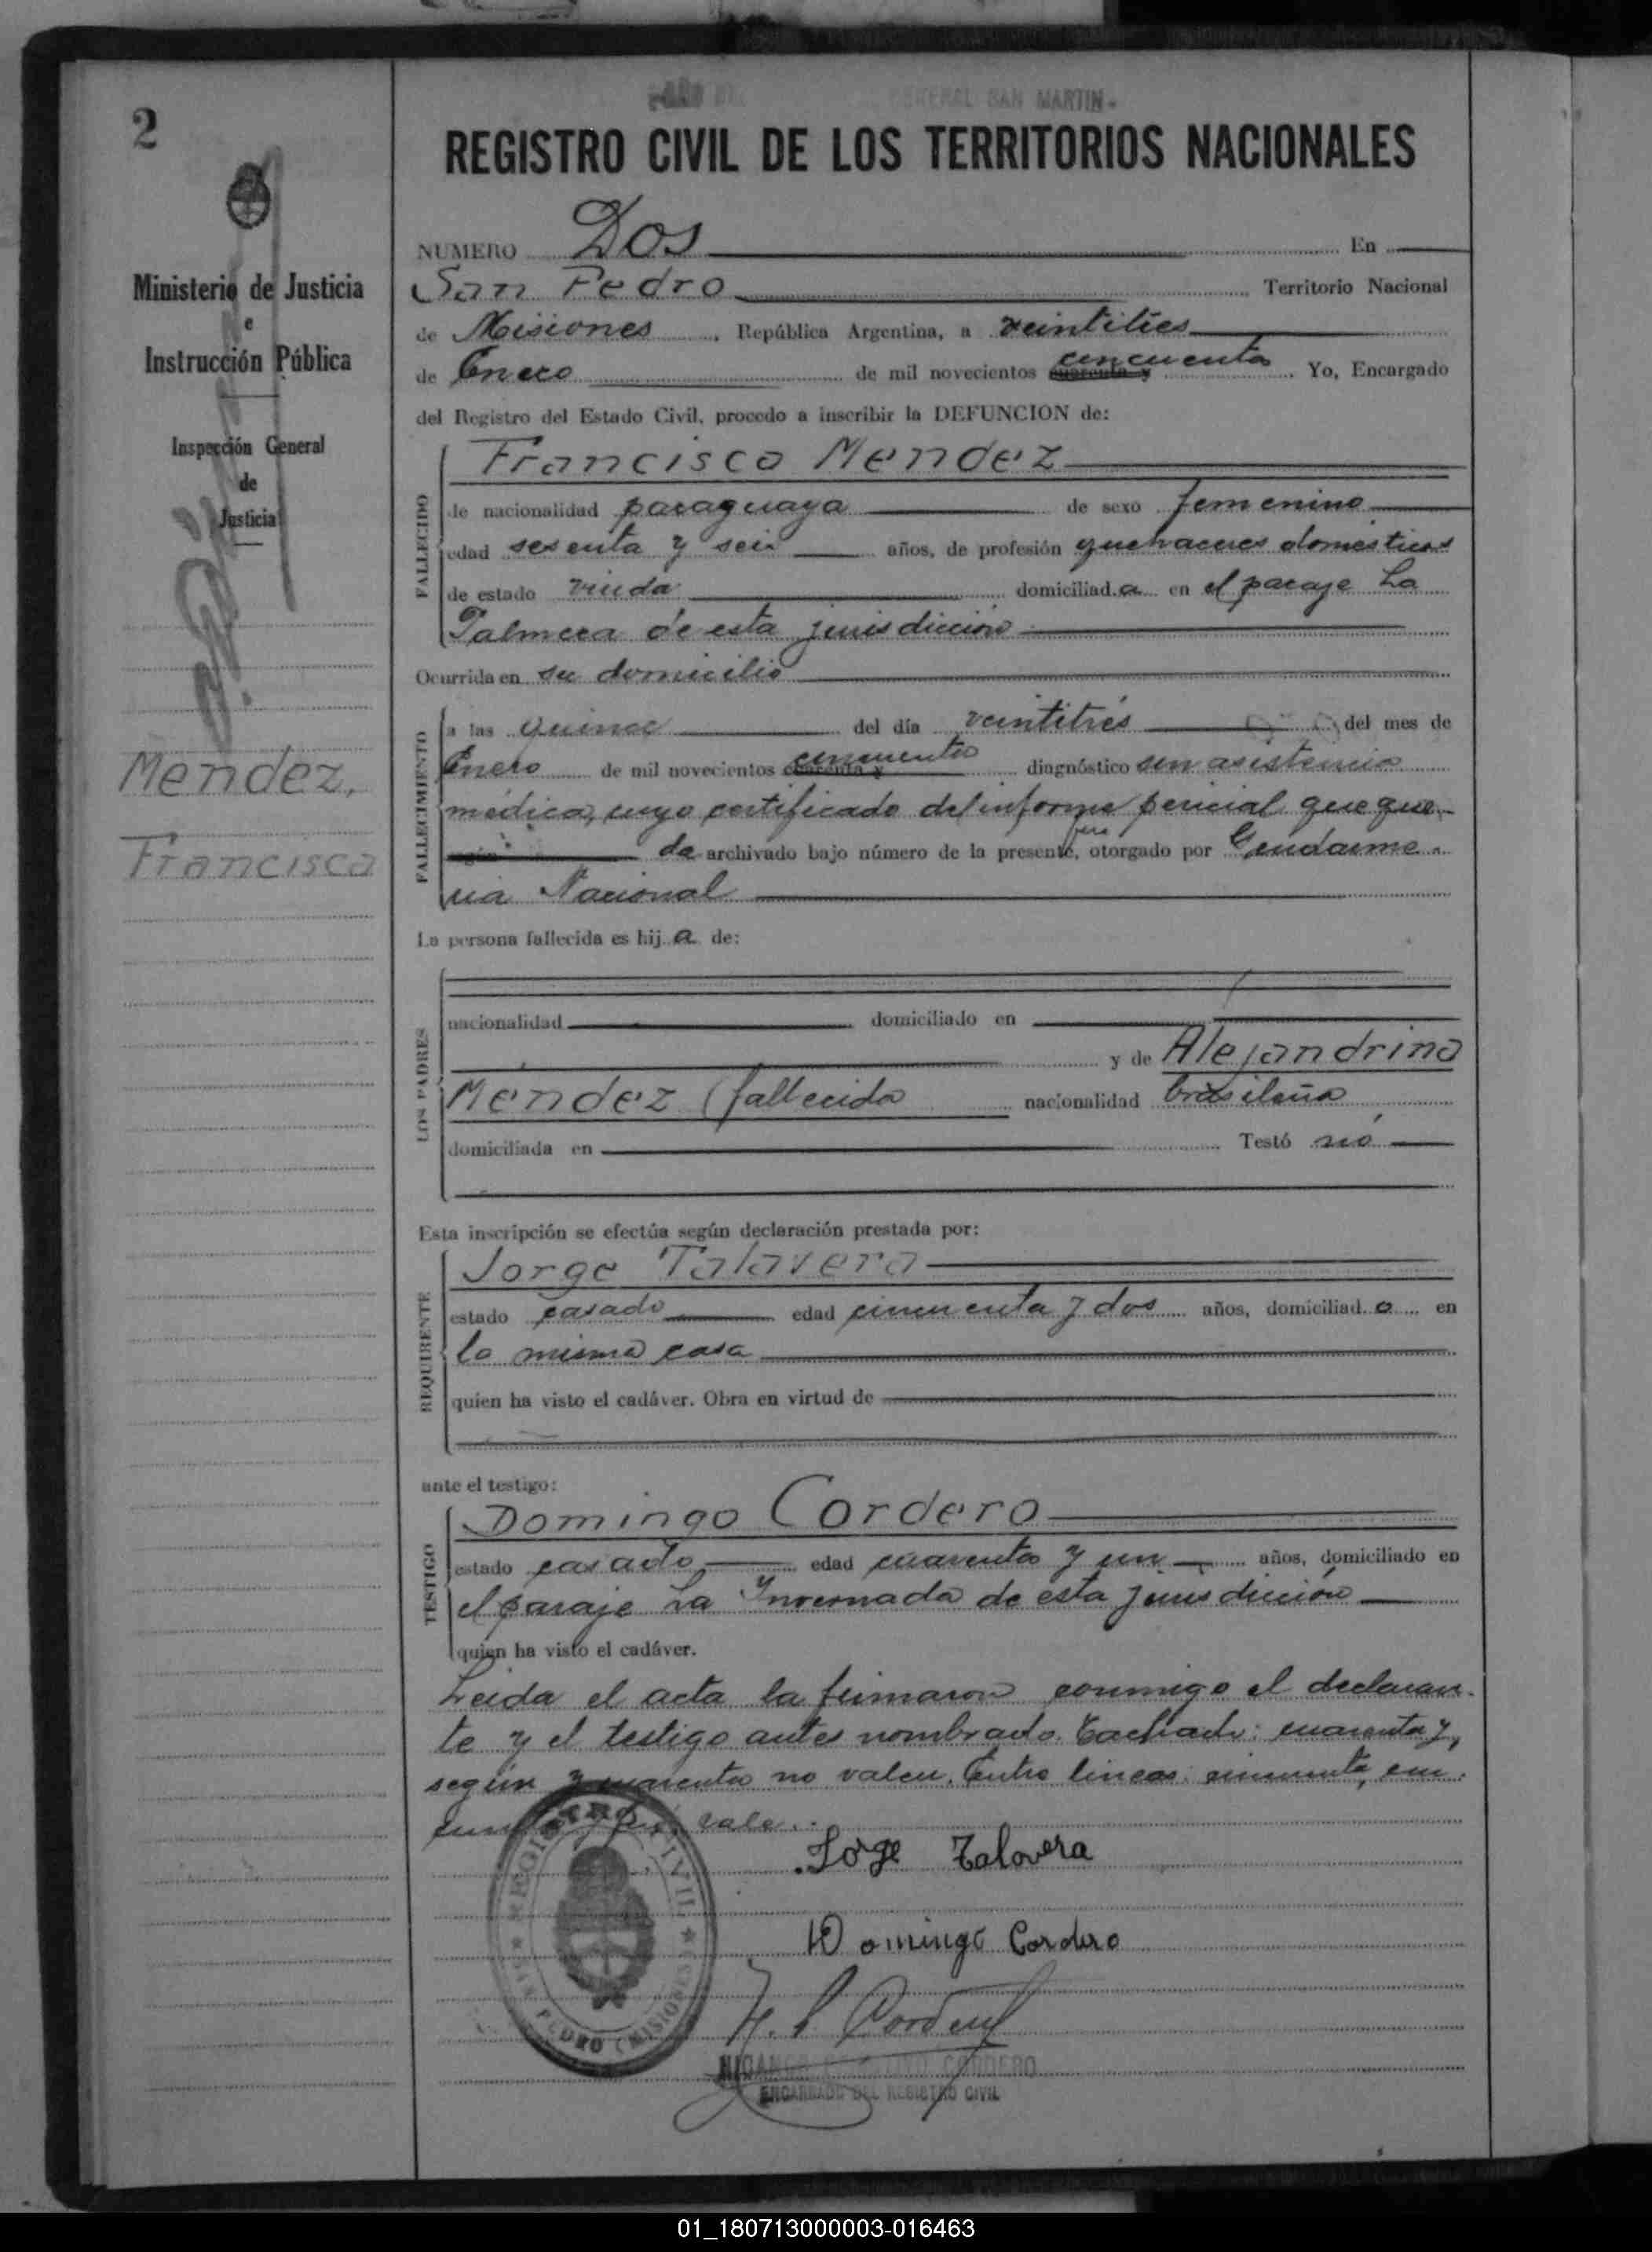 2
GENERAL SAN MARTIN-
REGISTRO CIVIL DE LOS TERRITORIOS NACIONALES
Ministerio de Justicia
e
Instrucción Pública
Inspección General
de
Justicia
Mendez,
Francisca
NUMERO Dos En
San Pedro Territorio Nacional
de Misiones, República Argentina, a veintitrés
de Enero de mil novecientos cuarenta y cincuenta Yo, Encargado
del Registro del Estado Civil, procedo a inscribir la DEFUNCION de:
FALLECIDO
Francisca Mendez
de nacionalidad paraguaya de sexo femenino
edad sesenta y seis años, de profesión quehaceres domésticos
de estado viuda domiciliad a en el paraje La
Palmera de esta jurisdicción
Ocurrida en su domicilio
FALLECIMIENTO
a las quince del día veintitrés del mes de
Enero de mil novecientos cuarenta y cincuenta diagnóstico sin asistencia
médica, cuyo certificado del informe pericial que que-
según da archivado bajo número de la presente, fué otorgado por Gendarme-
ria Nacional
La persona fallecida es hij a de:
LOS PADRES
nacionalidad domiciliado en
y de Alejandrina
Mendez (fallecida nacionalidad brasileña
domiciliada en Testó nó
Esta inscripción se efectúa según declaración prestada por:
REQUIRENTE
Jorge Talavera
estado casado edad cincuenta y dos años, domiciliad o en
la misma casa
quien ha visto el cadáver. Obra en virtud de
ante el testigo:
TESTIGO
Domingo Cordero
estado casado edad cuarenta y un años, domiciliado en
el paraje La Invernada de esta jurisdicción
quien ha visto el cadáver.
Leida el acta la firmaron conmigo el declaran-
te y el testigo antes nombrado. Tachado: cuarenta y,
según y cuarenta no valen. Entre lineas: cincuenta, cin-
cuenta y fué, vale.
Jorge Talovera
Domingo Cordero
REGISTRO CIVIL
SAN PEDRO (MISIONES)
H. S. Cordero
CORDERO
ENCARGADO DEL REGISTRO CIVIL
01_180713000003-016463